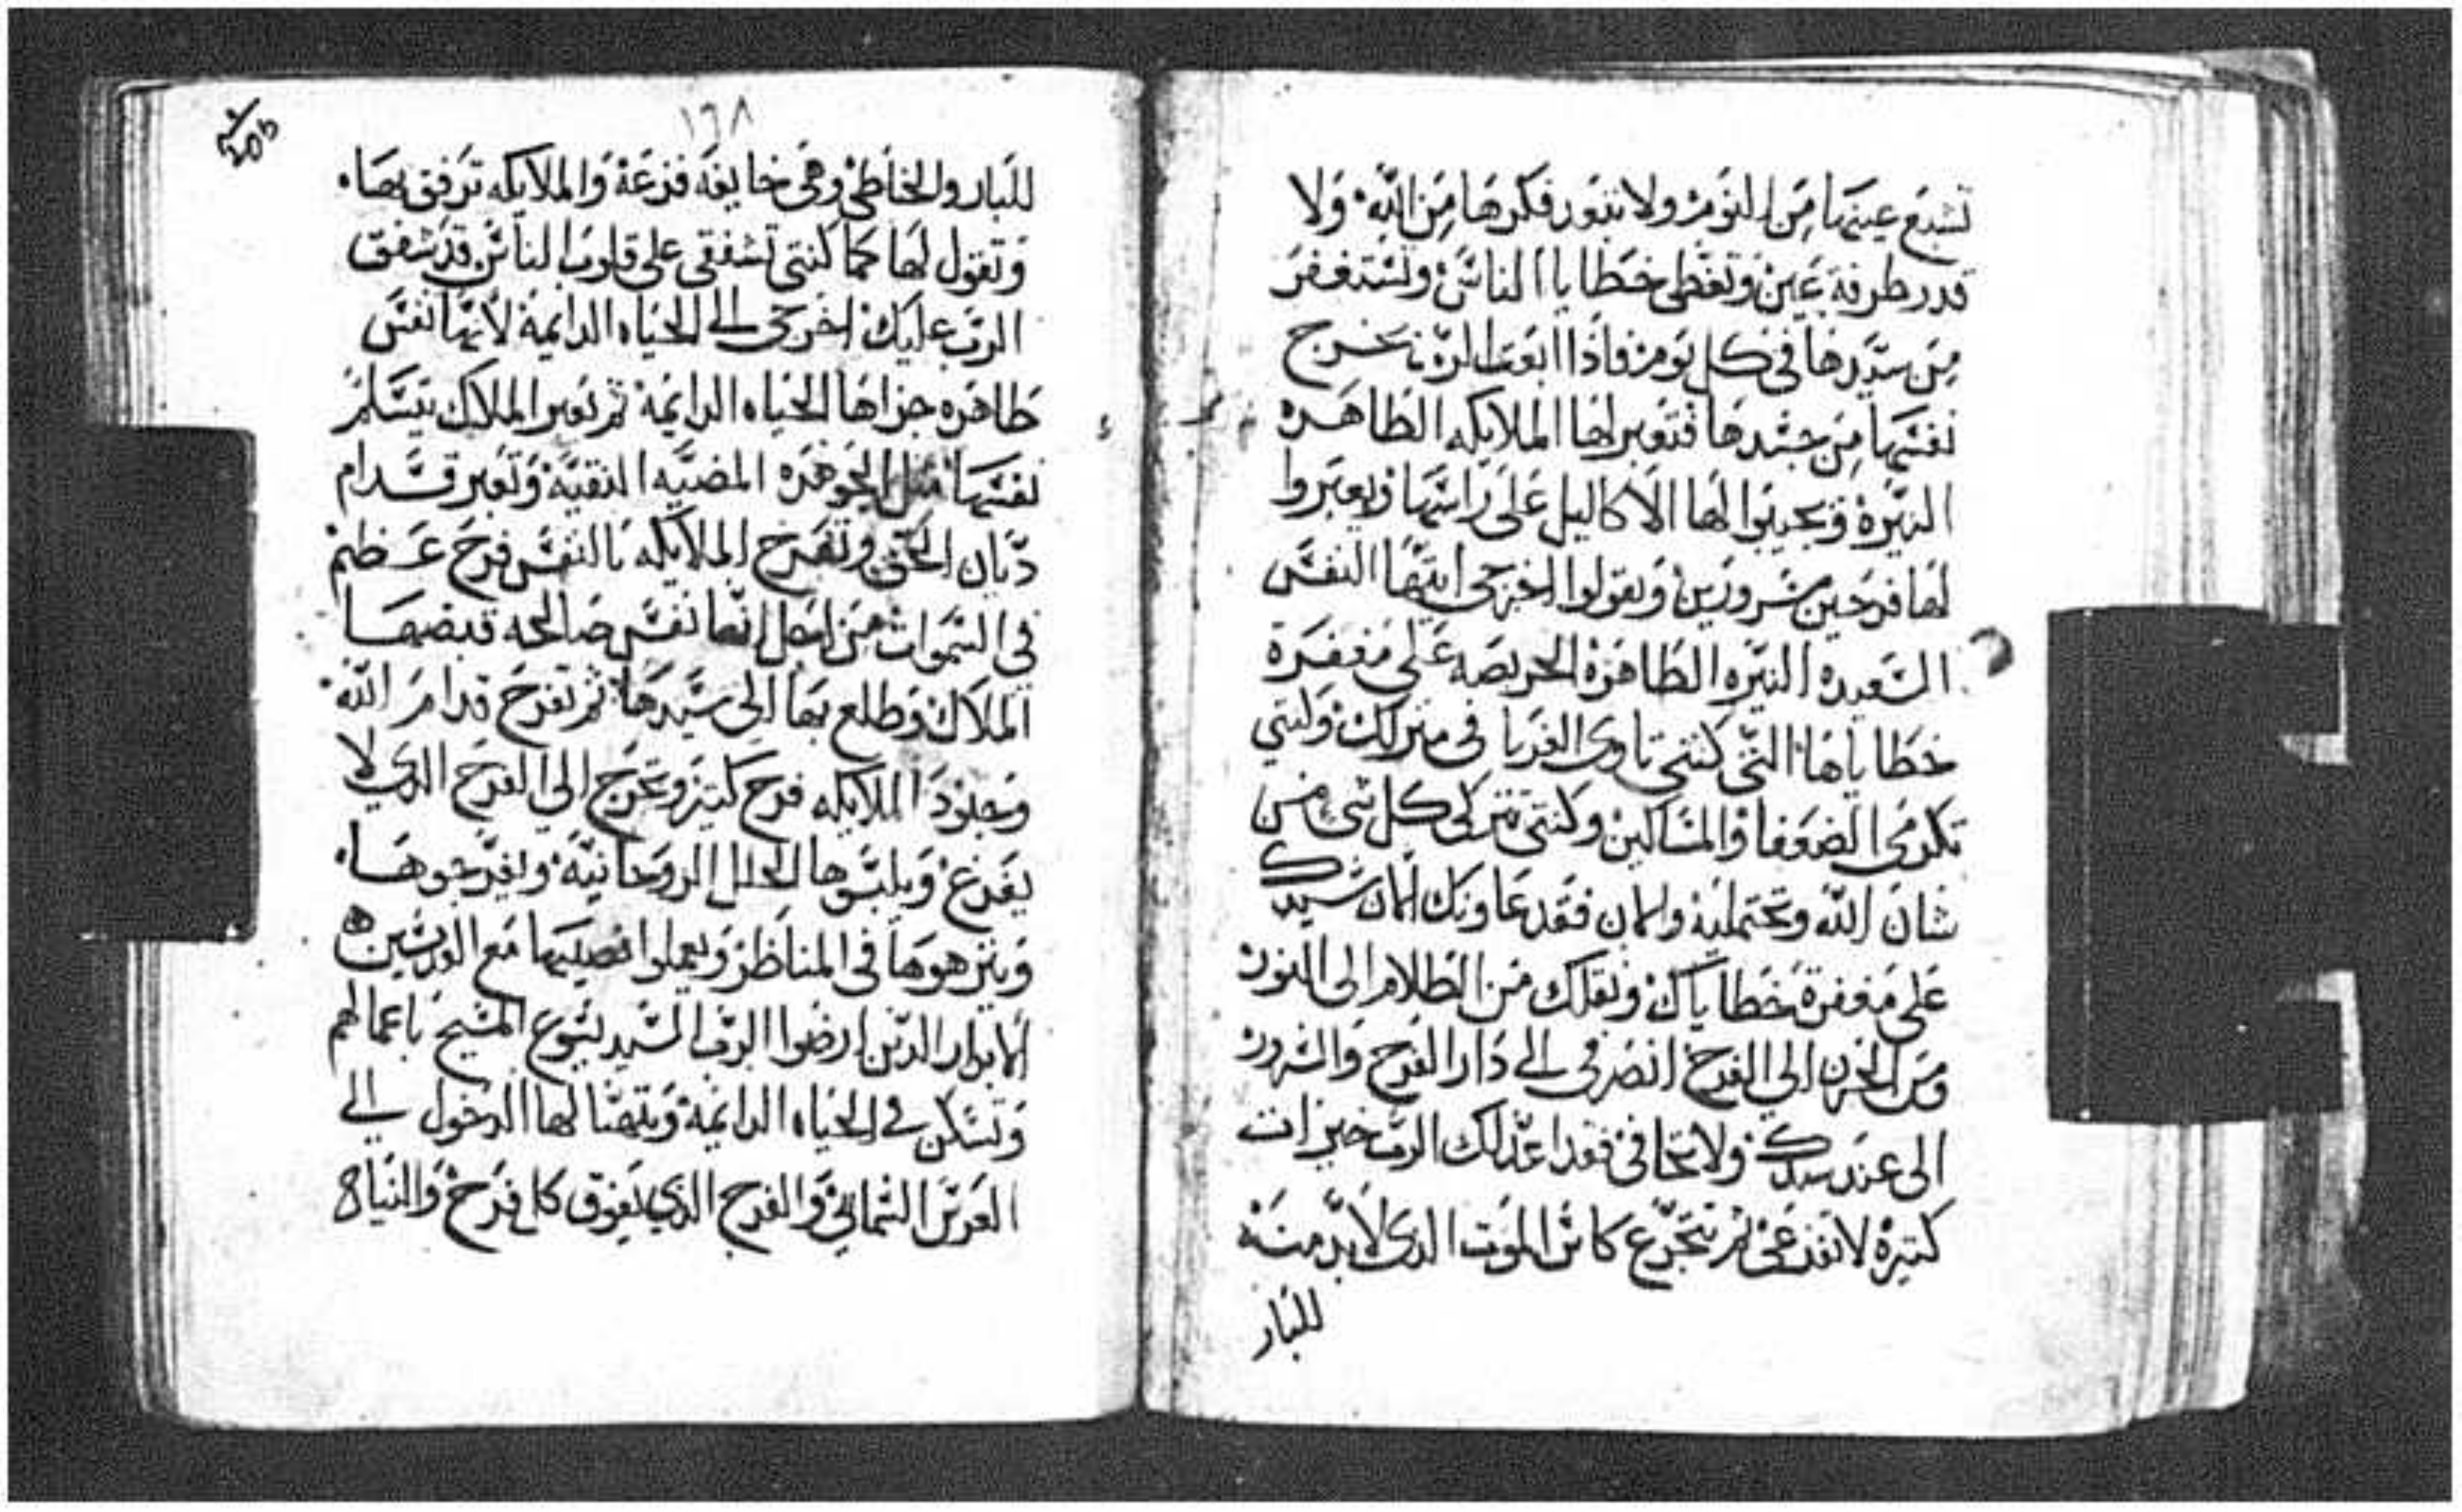 تشبع عينها من النوم ولا يفور فكرها من الله ولا
قدر طرفة عين وتغطى خطايا الناس وتستغفر
من سيدها فى كل يوم فاذا ابعت الرب تخرج
نفسها من جسدها فتعبر لها الملايكه الطاهره
النيره ويجيبوا لها الاكاليل على راسها ويعبروا
لها فرحين مسرورين ويقولوا اخرجى ايتها النفس
السعيده النيره الطاهره الحريصه على مغفرة
خطاياها التى كنتى تاوى الغربا فى منزلك ولنتي
تكرمى الضعفا والمساكين وكنتى تتركى كل شى من
شان الله وتحتمليه والان فقد عاونك الان سيدك
على مغفرة خطاياك ونقلك من الظلام الى النور
ومن الحزن الى الفرح انصرفى الى دار الفرح والسرور
الى عند سيدك ولا تخافى فقد اعد لك الرب خيرات
كتيره لا تفزعى لم تتجرع كاس الموت الدى لابد منه
للبار
١٦٨
205
للبار والخاطى وهى خايفه فزعة والملايكه ترفق بها
وتقول لها كما كنتى تشفقى على قلوب الناس قد شفق
الرب عليك اخرجى الى الحياه الدايمة لانها نفس
طاهره جزاها الحياه الدايمة ثم يعبر الملاك يتسلم
نفسها مثل الجوهره المضيه النقية وتعبر قدام
ديان الحق وتفرح الملايكه بالنفس فرح عظيم
فى السموات من اجل انها نفس صالحه قبضها
الملاك وطلع بها الى سيدها ثم تفرح قدام الله
وجنود الملايكه فرح كتير وتخرج الى الفرح الدى لا
يفرغ ويلبسوها الحلل الروحانية ويفرجوها
وينزهوها فى المناظر ويعملوا نصيبها مع القديسين
الابرار الدين ارضوا الرب السيد يسوع المسيح باعمالهم
وتسكن فى الحياه الدايمة ويتهنا لها الدخول الى
العرس السماني والفرح الدي يفوق كل فرح والنياح